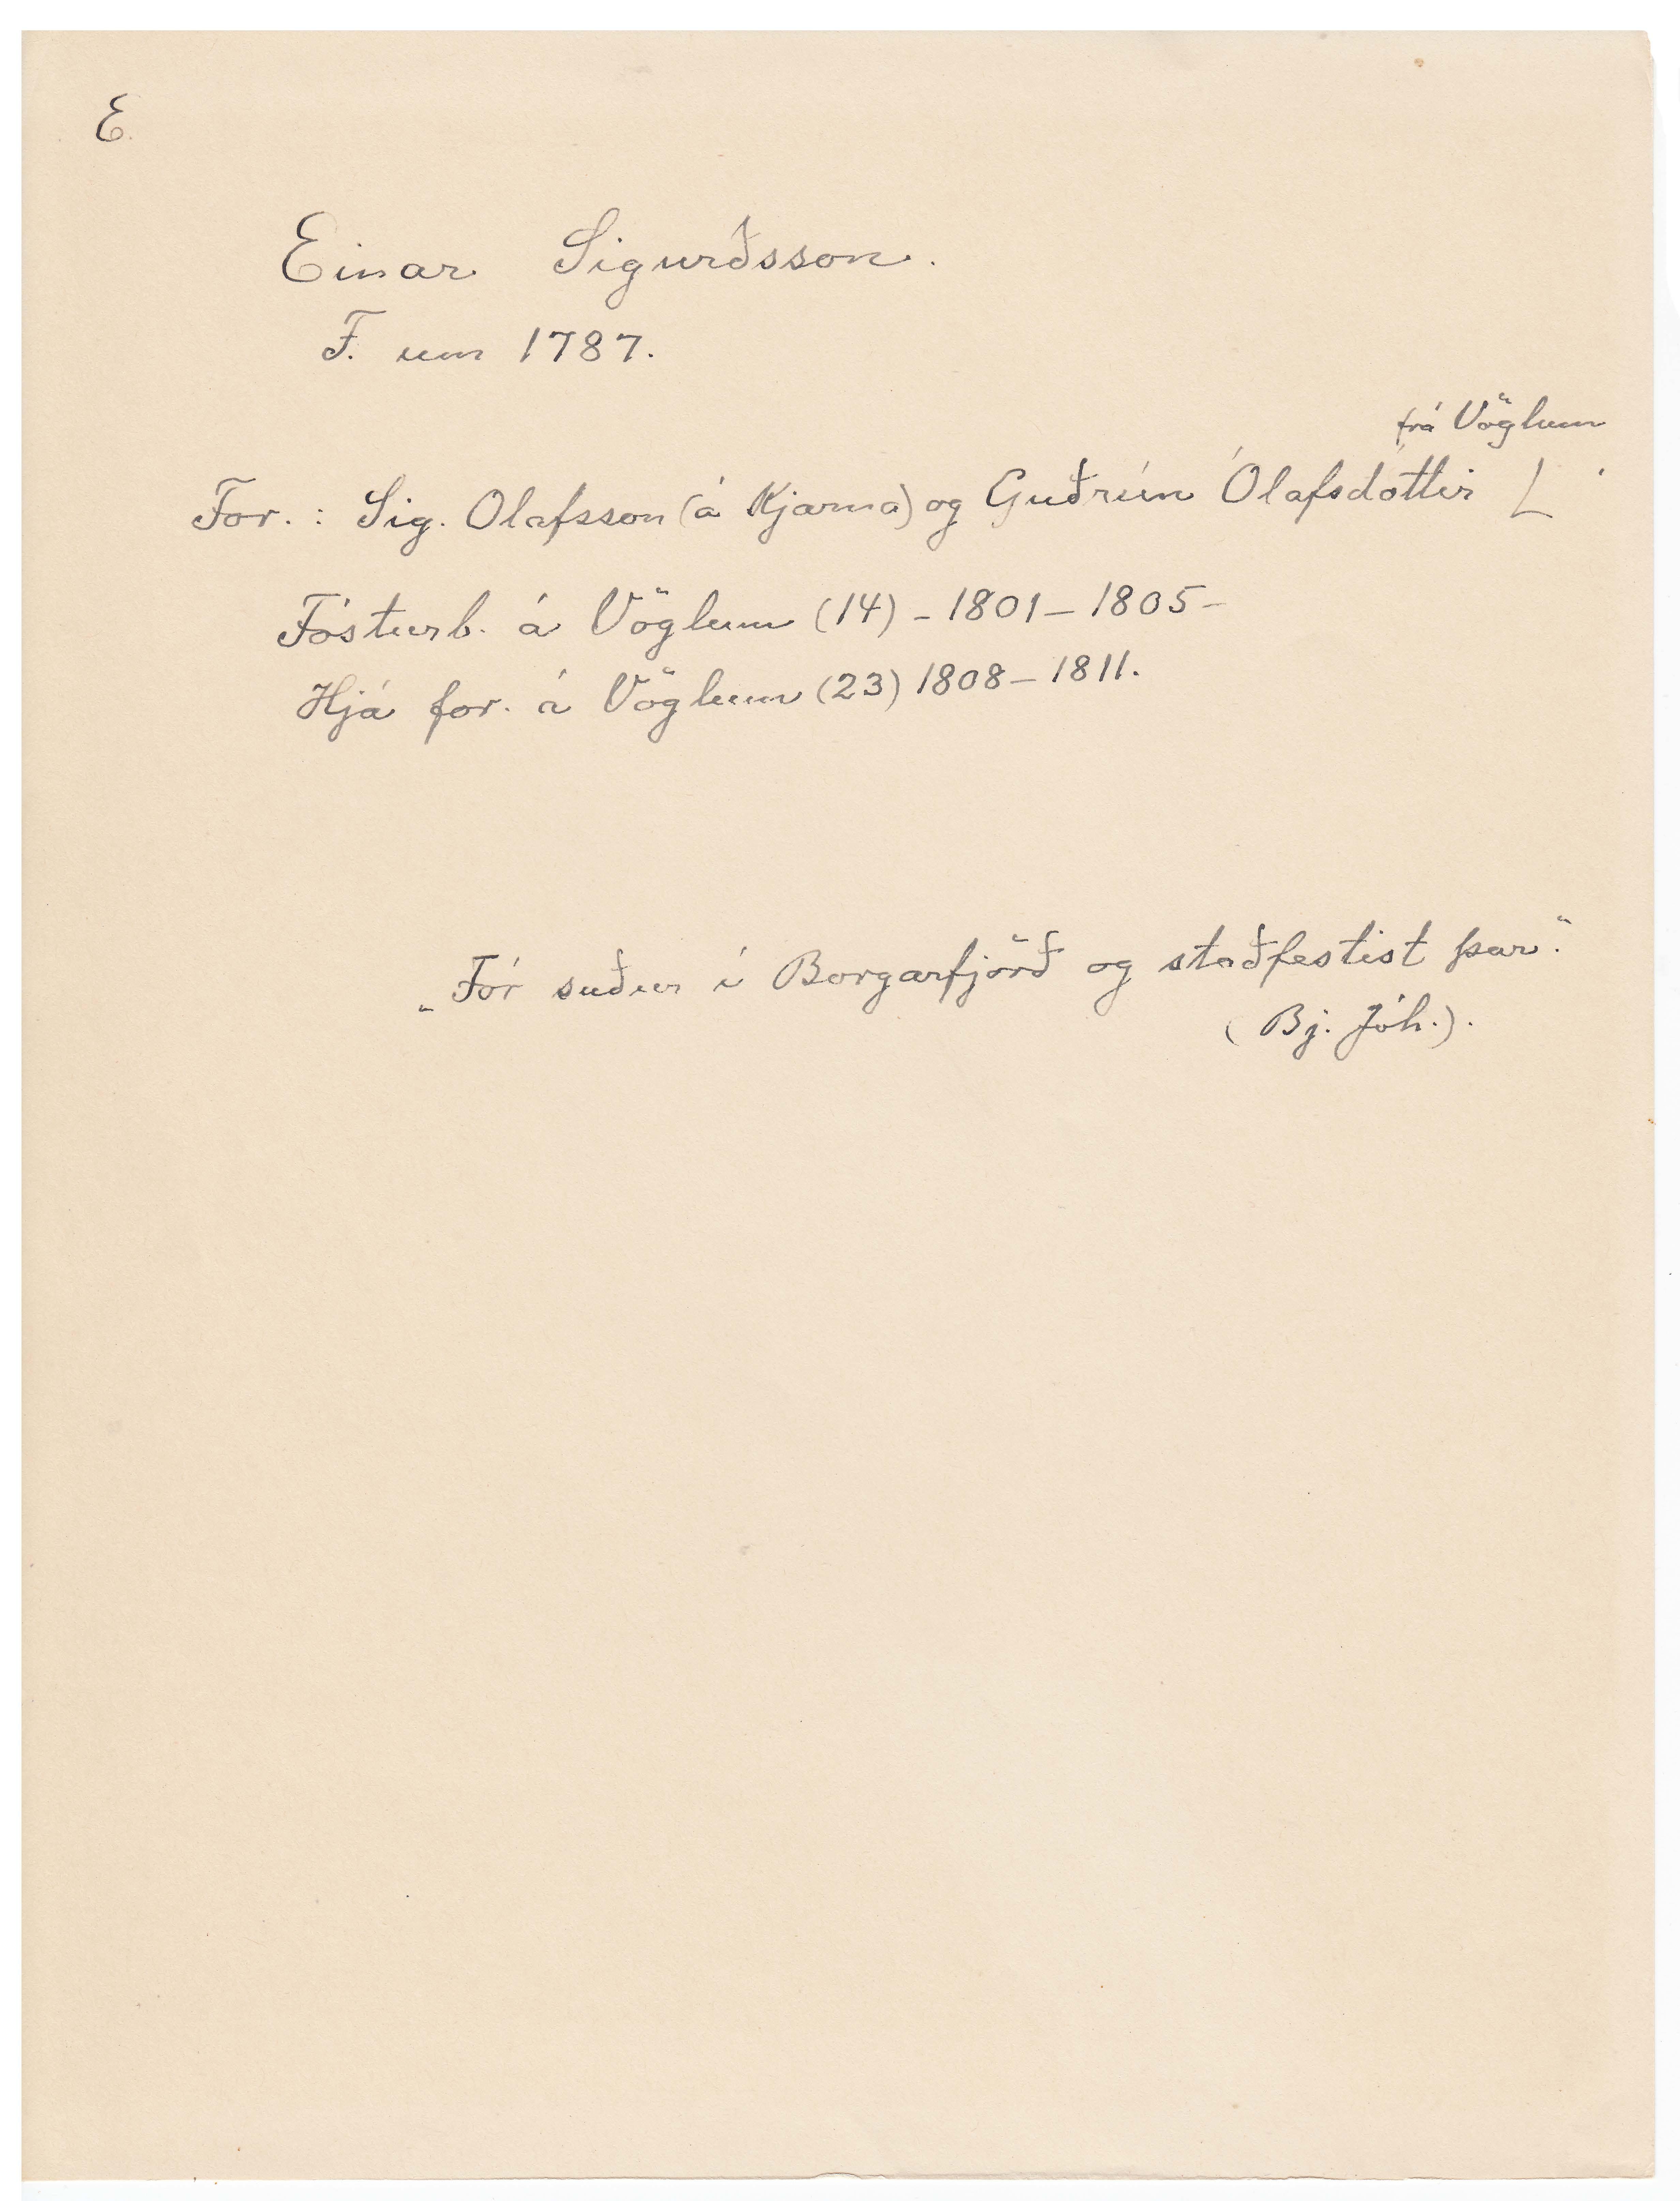 E.
Einar Sigurðsson.
F. um 1787.
frá Vöglum
For. : Sig. Olafsson (á Kjarna) og Guðrún Ólafsdóttir
Fósturb. á Vöglum (14) - 1801 - 1805 -
Hjá for. á Vöglum (23) 1808 - 1811.
„Fór suður í Borgarfjörð og staðfestist þar.“
(Bj. Jóh.).